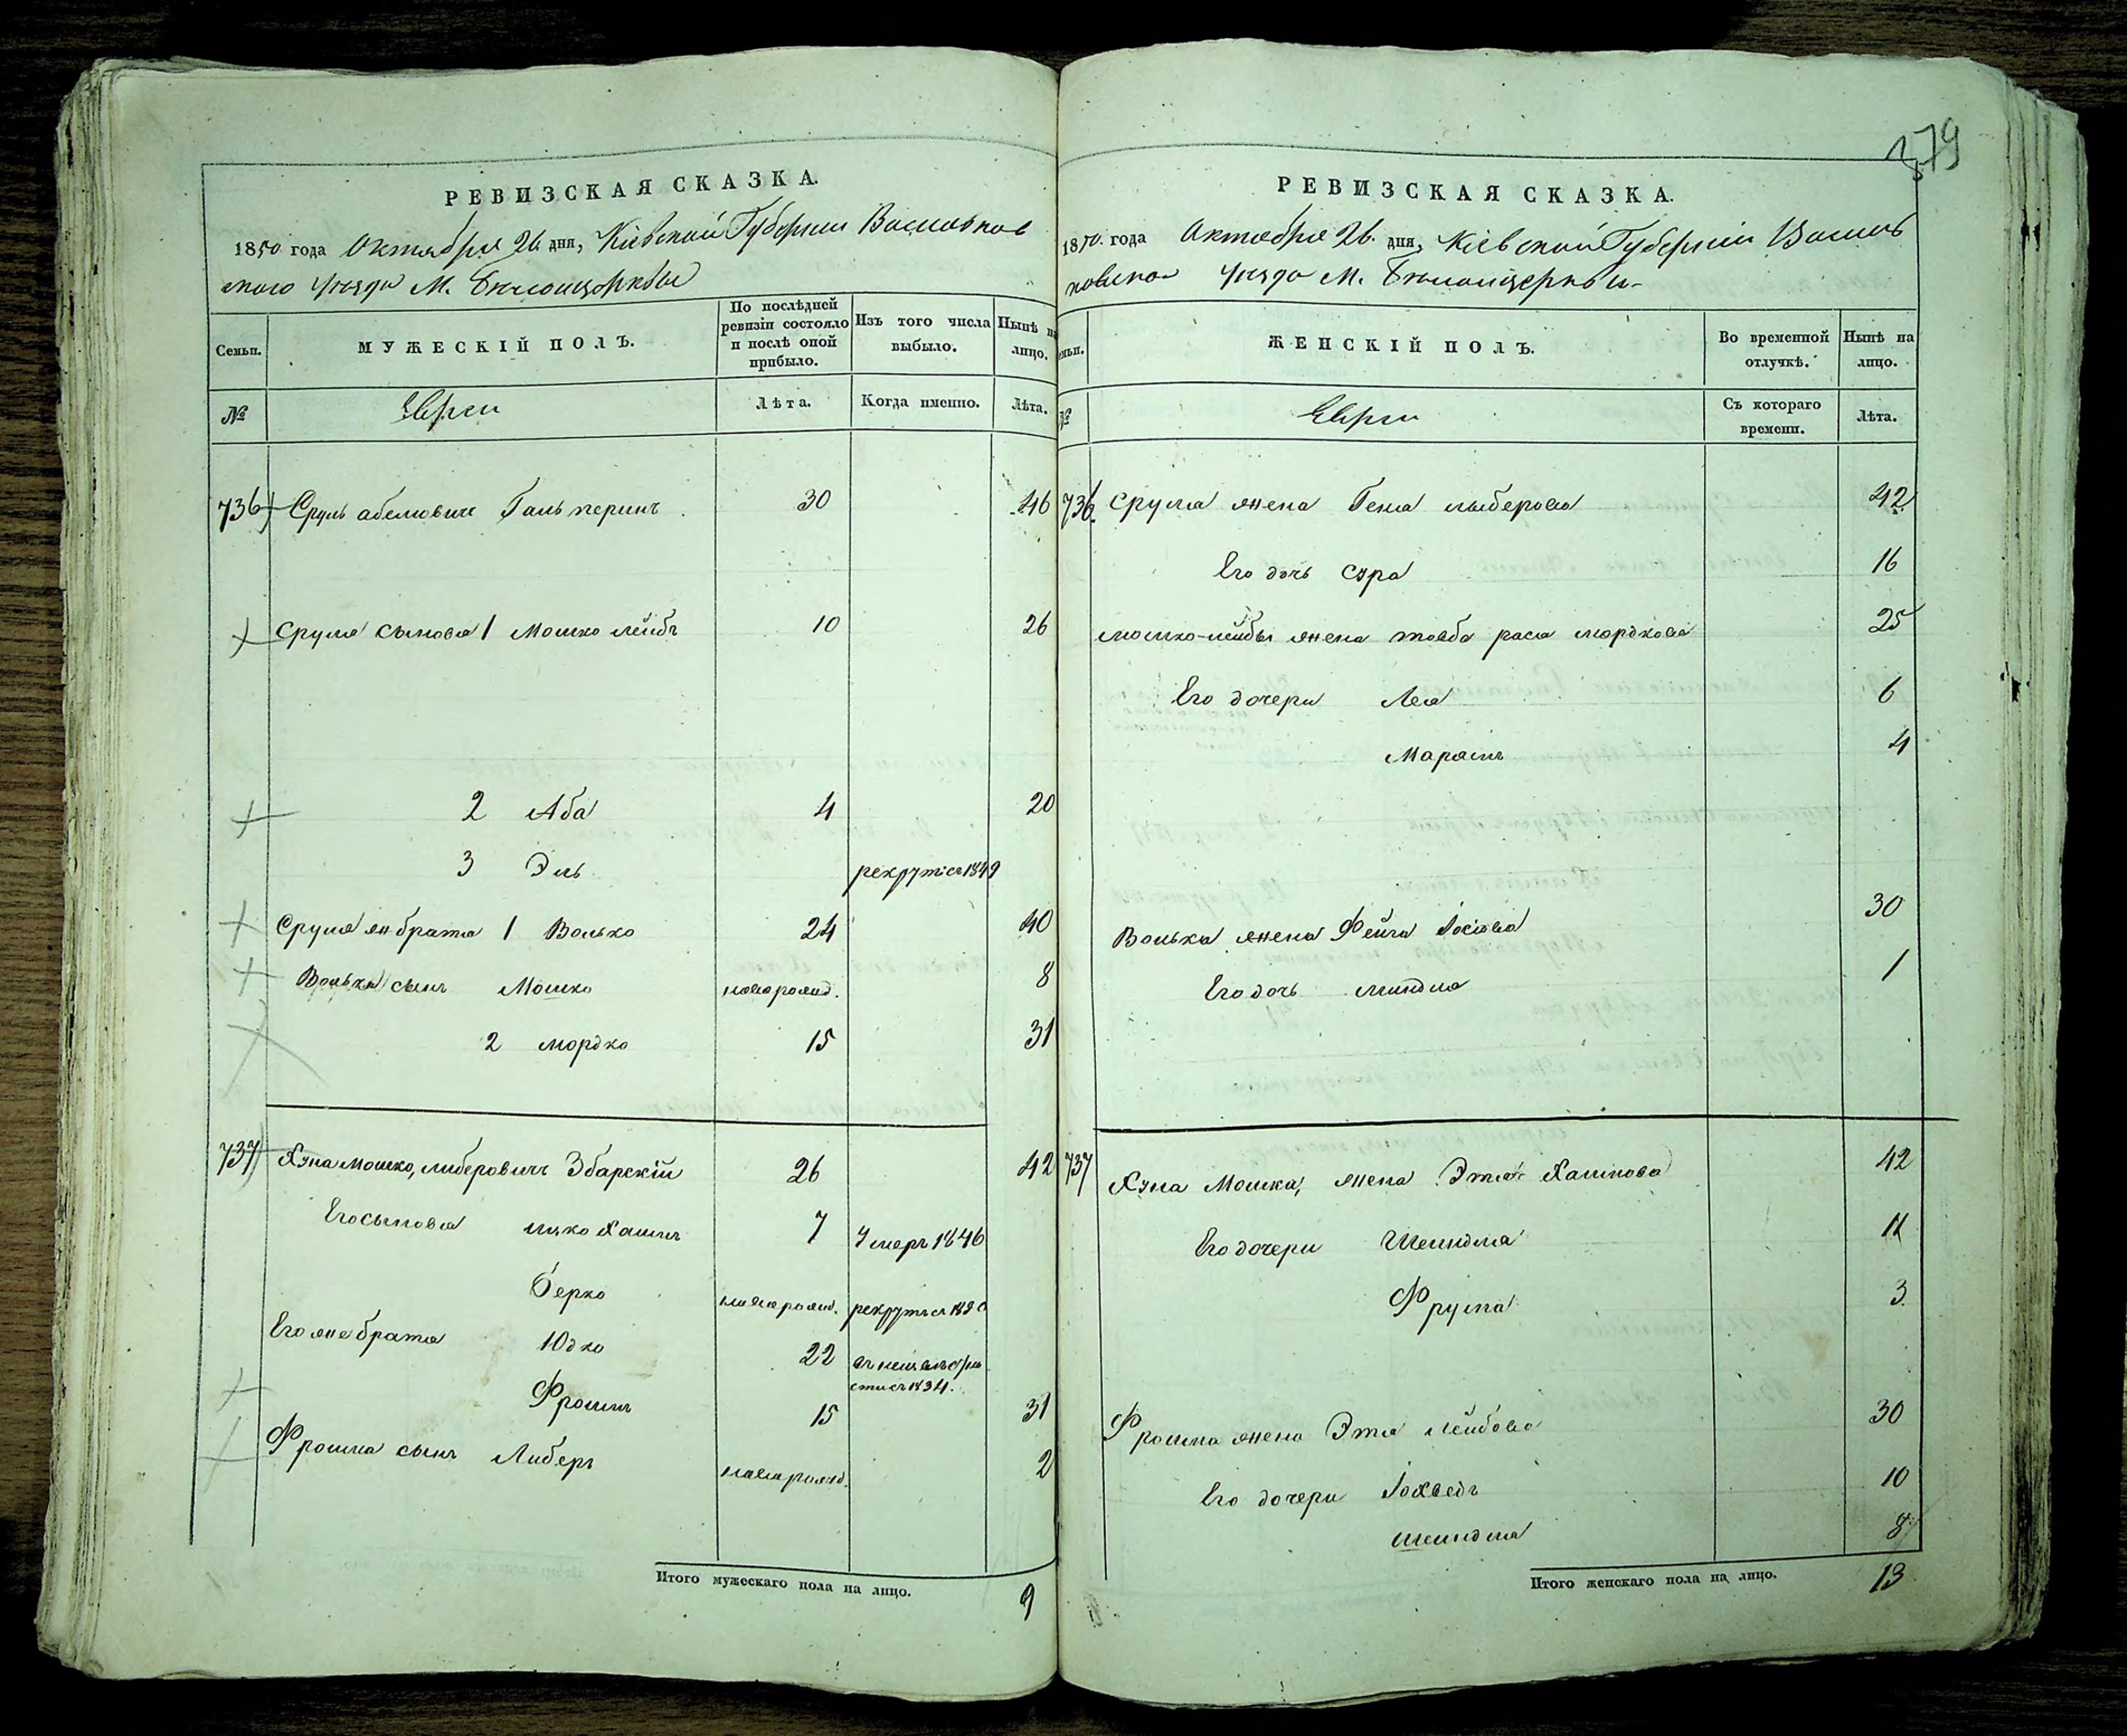 379
РЕВИЗСКАЯ СКАЗКА.
1850 года Октября 26 дня, Кіевской Губерніи Васильков
скаго уезда М. Белоцерквы
Семьи.
МУЖЕСКІЙ ПОЛЪ.
По послѣдней ревизіи состояло и послѣ оной прибыло.
Изъ того числа выбыло.
Нынѣ на лицо.
№
Евреи
Лѣта.
Когда именно.
Лѣта.
736) Сруль абелювичъ Гальперинъ 30 46
Суля сыновя 1 Мошко лейбъ 10 26
2 Аба 4 20
3 Эль рекрутъ съ 1849
Сруля жъ братя 1 Волько 24 40
Волька сынъ Мошко новорожд. 8
2 мордко 15 31
737) Хуна мошко, либеровичъ Збарскій 26 42
Его сыновя ицко Хаимъ 7 Умеръ 1846
Берко новорожд. рекрутъ съ
Его же братя Юдко 22
съ 1834.
Фроимъ 15 31
Фроима сынъ Либеръ новорожд. 2
Итого мужескаго пола на лицо. 9
РЕВИЗСКАЯ СКАЗКА.
1850. года Октября 26. дня, Кіевской Губерніи Василь
ковско уезда М. Белоцеркви
Семьи.
ЖЕНСКІЙ ПОЛЪ.
Во временной отлучкѣ.
Нынѣ на лицо.
№
Евреи
Съ котораго времени.
Лѣта.
736. Суля жена Геня лыберова 42
Его дочь Сура 16
мошко-лейбы жена товба рася мордкова 25
Его дочери Лея 6
Маряснъ 4
Волька жена Фейга Іосіова 30
Его дочь миндля 1
737 Хуна Мошка, жена Этя Хаимова 42
Его дочери Шеиндля 11
Фрума 3.
Фроима жена Этя лейбова 30
Его дочери Іохведъ 10
шеиндля 8
Итого женскаго пола на лицо. 13